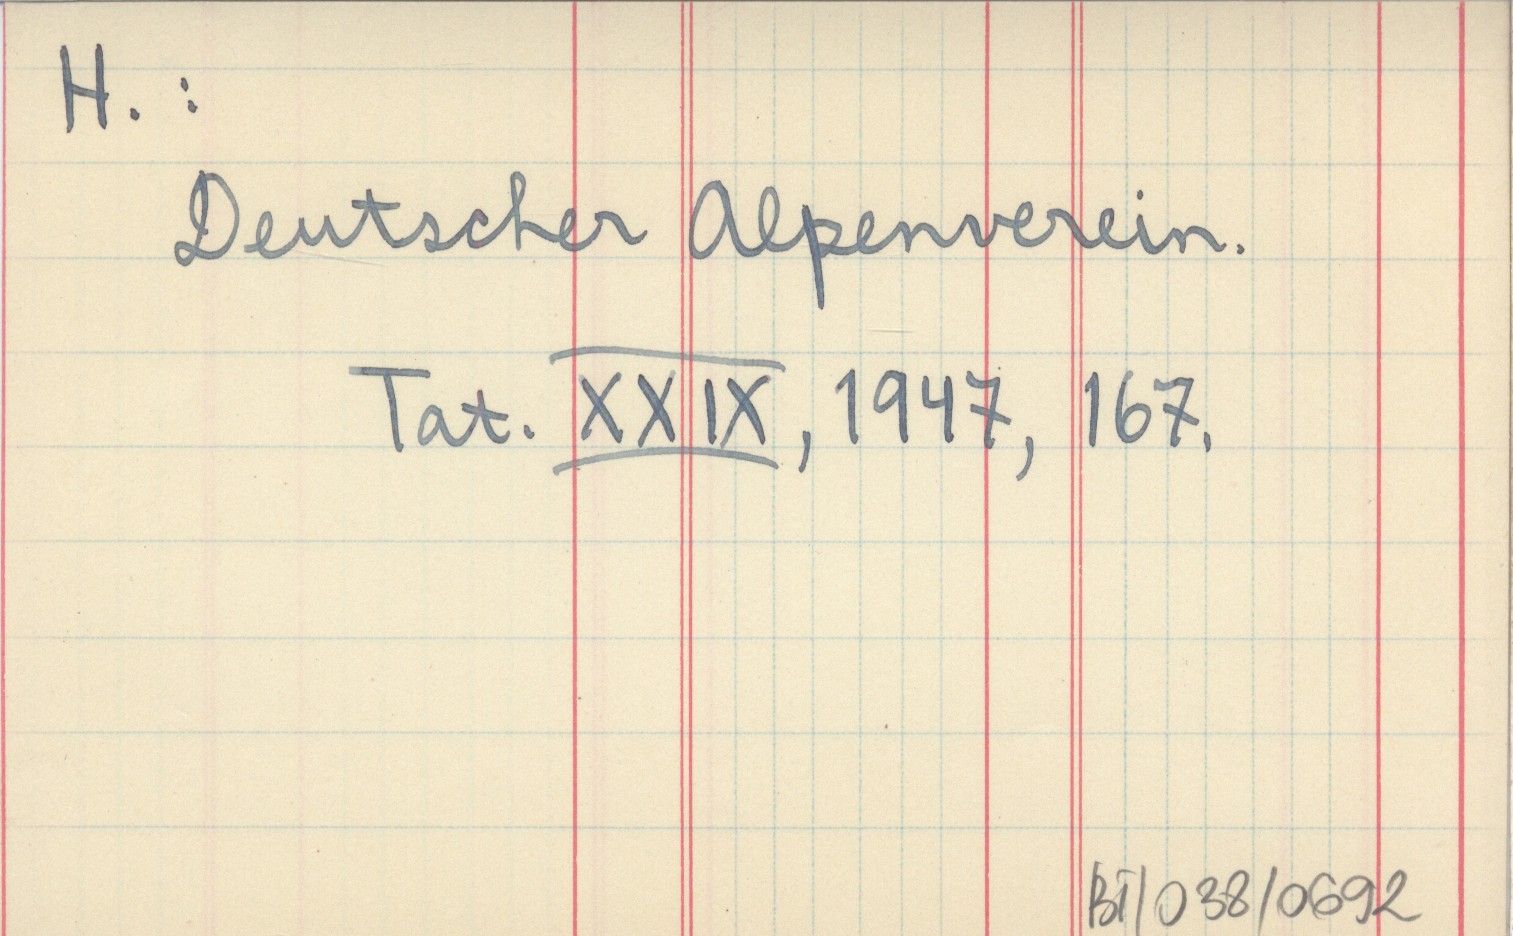 H. :
Deutscher Alpenverein.
Tat. XXIX, 1947, 167.
BT/038/0692